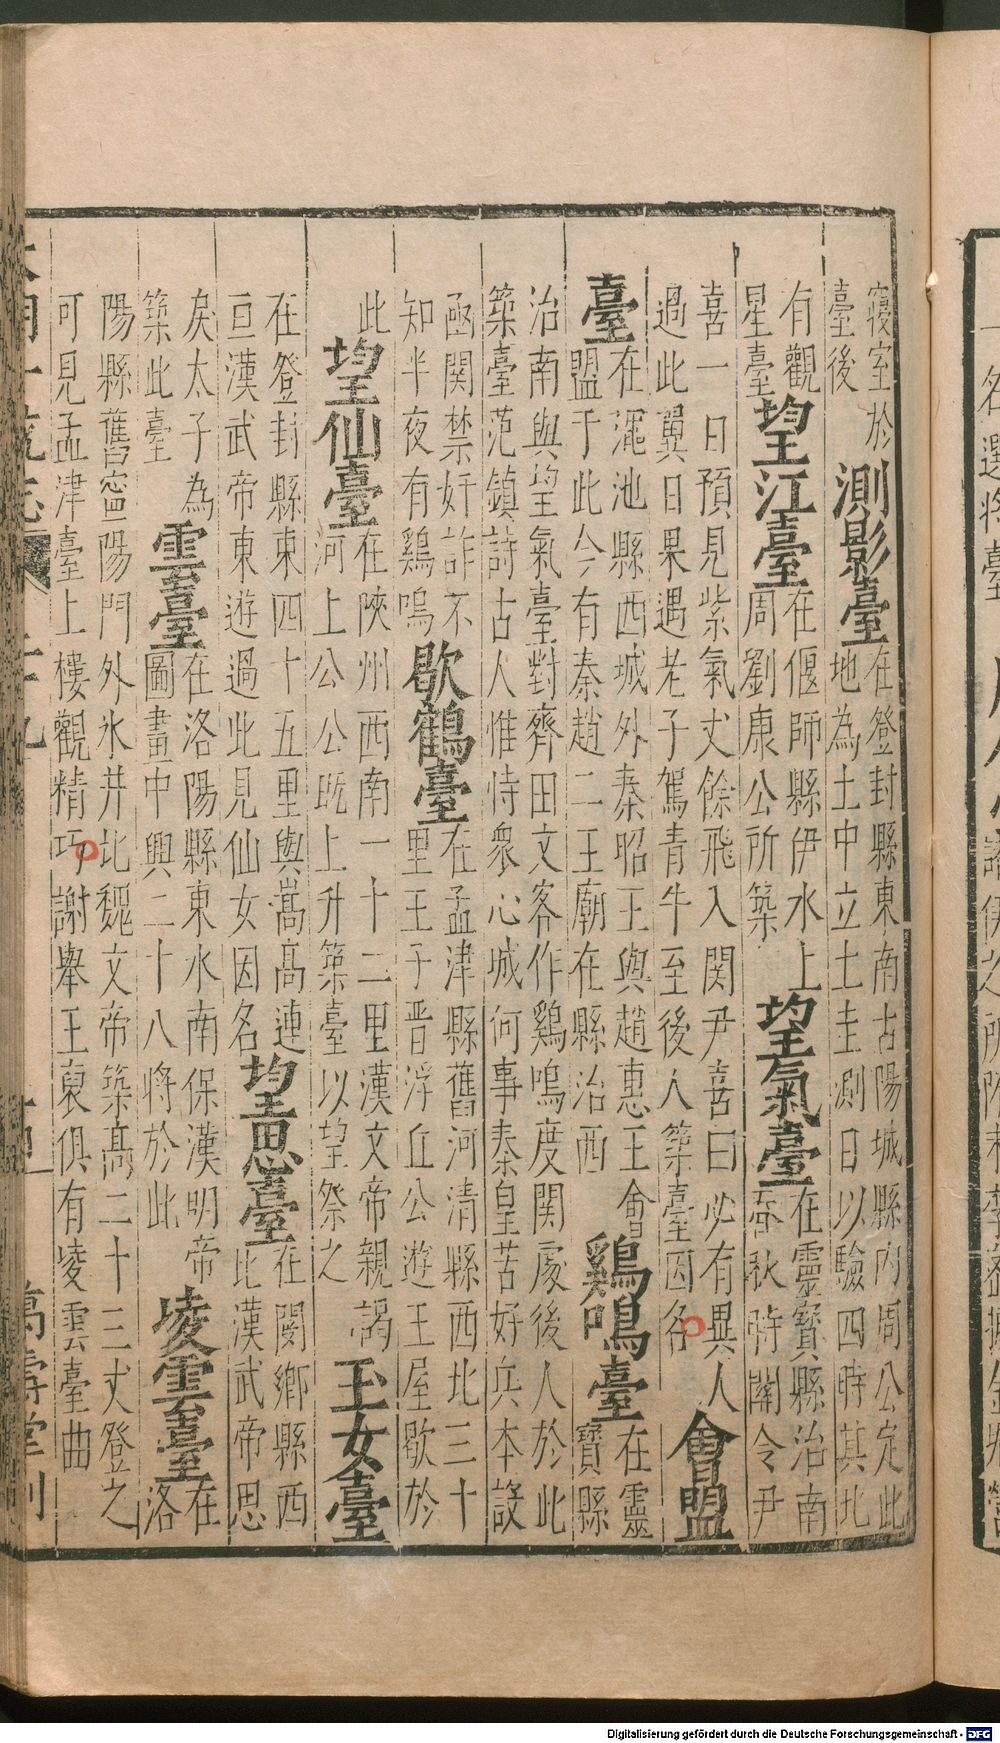 寢室於臺後測影臺在登封縣東南古陽城縣內周公定此地為土中立土圭測日以驗四時其北
有觀星臺望江臺在偃師縣伊水上周劉康公所築望氣臺在靈寶縣治南春秋時關令尹
喜一日預見紫氣丈餘飛入関尹喜曰必有異人過此翼日果遇老子駕青牛至後人築臺因名會盟
臺在澠池縣西城外秦昭王與趙惠王會盟于此今有秦趙二王廟在縣治西鷄鳴臺在靈寶縣
治南與望氣臺對齊田文客作鷄鳴度関處後人於此築臺范鎮詩古人惟恃衆心城何事秦皇苦好兵本設
凾関禁奸詐不知半夜有鷄鳴歇鶴臺在孟津縣舊河清縣西北三十里王子晋浮丘公遊王屋歇於
此望仙臺在陝州西南一十二里漢文帝親謁河上公公既上升築臺以望祭之玉女臺
在登封縣東四十五里與嵩髙連亘漢武帝東遊過此見仙女因名望思臺在閿鄉縣西北漢武帝思
戾太子為築此臺雲臺在洛陽縣東水南保漢明帝圖畫中興二十八將於此凌雲臺在洛
陽縣舊寧陽門外氷井北魏文帝築髙二十三丈登之可見孟津臺上樓觀精巧謝舉王裒俱有凌雲臺曲
萬壽堂刊
Digitalisierung gefördert durch die Deutsche Forschungsgemeinschaft - DFG